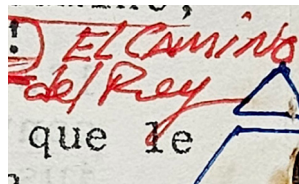 !
El Camino
del Rey
que le